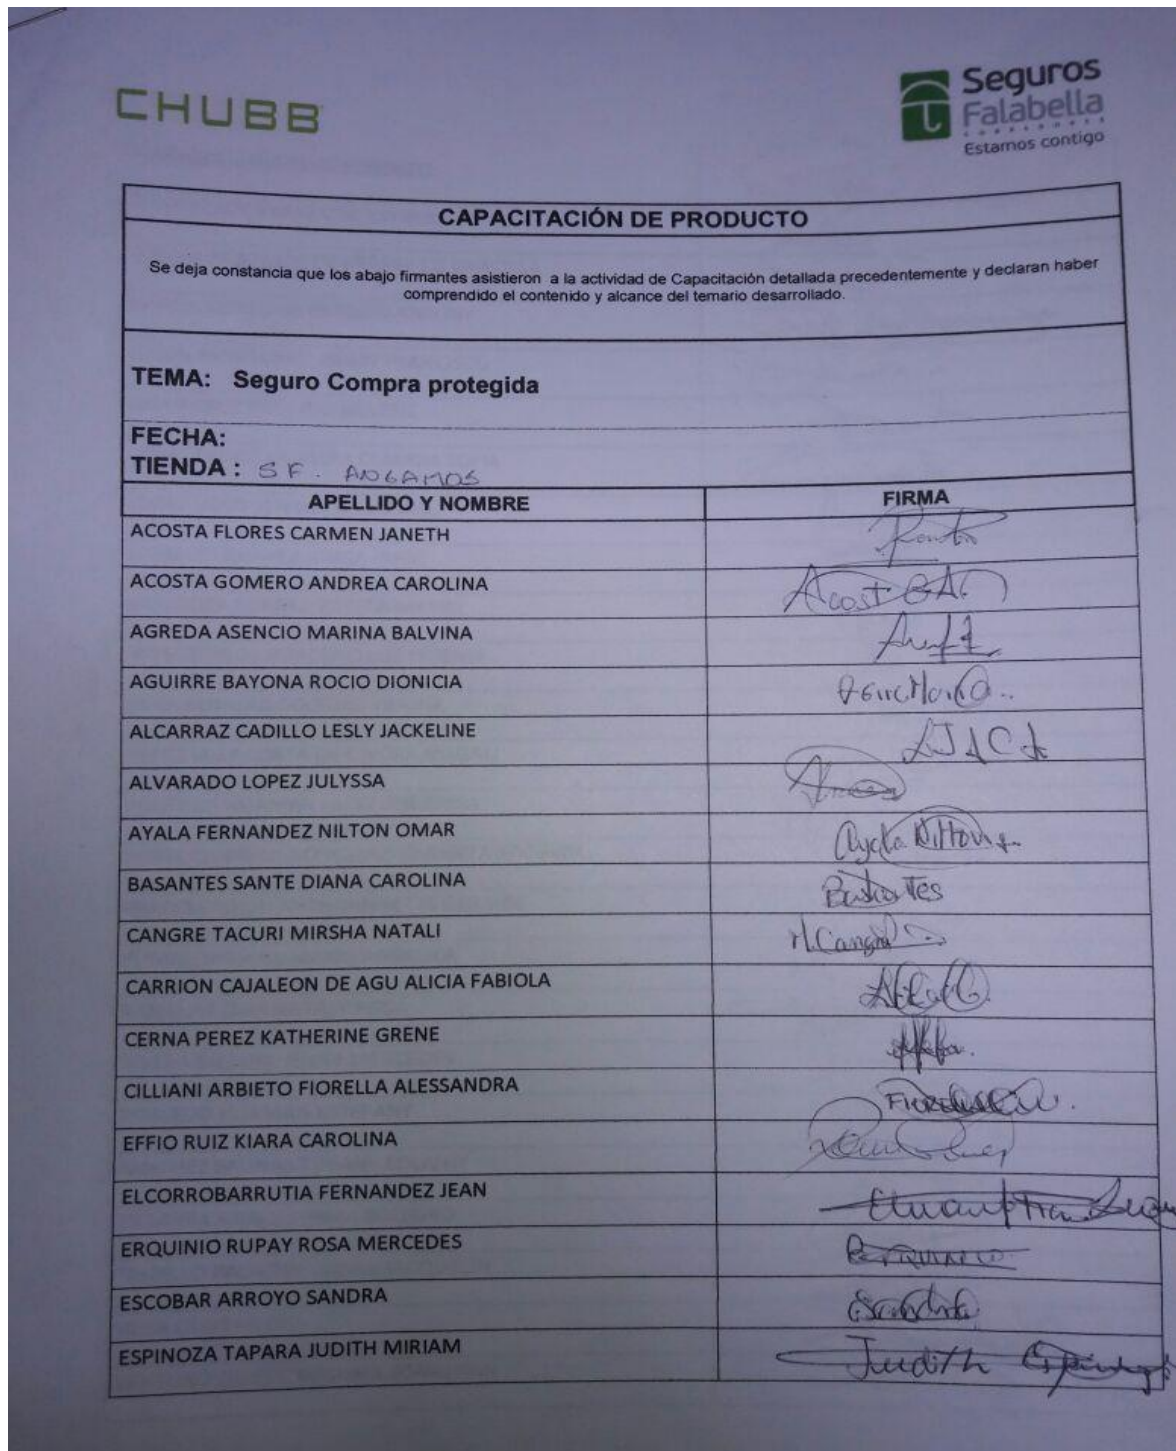 CHUBB
Seguros
Falabella
CORREDORES
Estamos contigo
CAPACITACIÓN DE PRODUCTO
Se deja constancia que los abajo firmantes asistieron a la actividad de Capacitación detallada precedentemente y declaran haber
comprendido el contenido y alcance del temario desarrollado.
TEMA: Seguro Compra protegida
FECHA:
TIENDA : S F. ANGAMOS
APELLIDO Y NOMBRE FIRMA
ACOSTA FLORES CARMEN JANETH
ACOSTA GOMERO ANDREA CAROLINA
AGREDA ASENCIO MARINA BALVINA
AGUIRRE BAYONA ROCIO DIONICIA
ALCARRAZ CADILLO LESLY JACKELINE
ALVARADO LOPEZ JULYSSA
AYALA FERNANDEZ NILTON OMAR
BASANTES SANTE DIANA CAROLINA
CANGRE TACURI MIRSHA NATALI
CARRION CAJALEON DE AGU ALICIA FABIOLA
CERNA PEREZ KATHERINE GRENE
CILLIANI ARBIETO FIORELLA ALESSANDRA
EFFIO RUIZ KIARA CAROLINA
ELCORROBARRUTIA FERNANDEZ JEAN
ERQUINIO RUPAY ROSA MERCEDES
ESCOBAR ARROYO SANDRA Sandra
ESPINOZA TAPARA JUDITH MIRIAM Judith